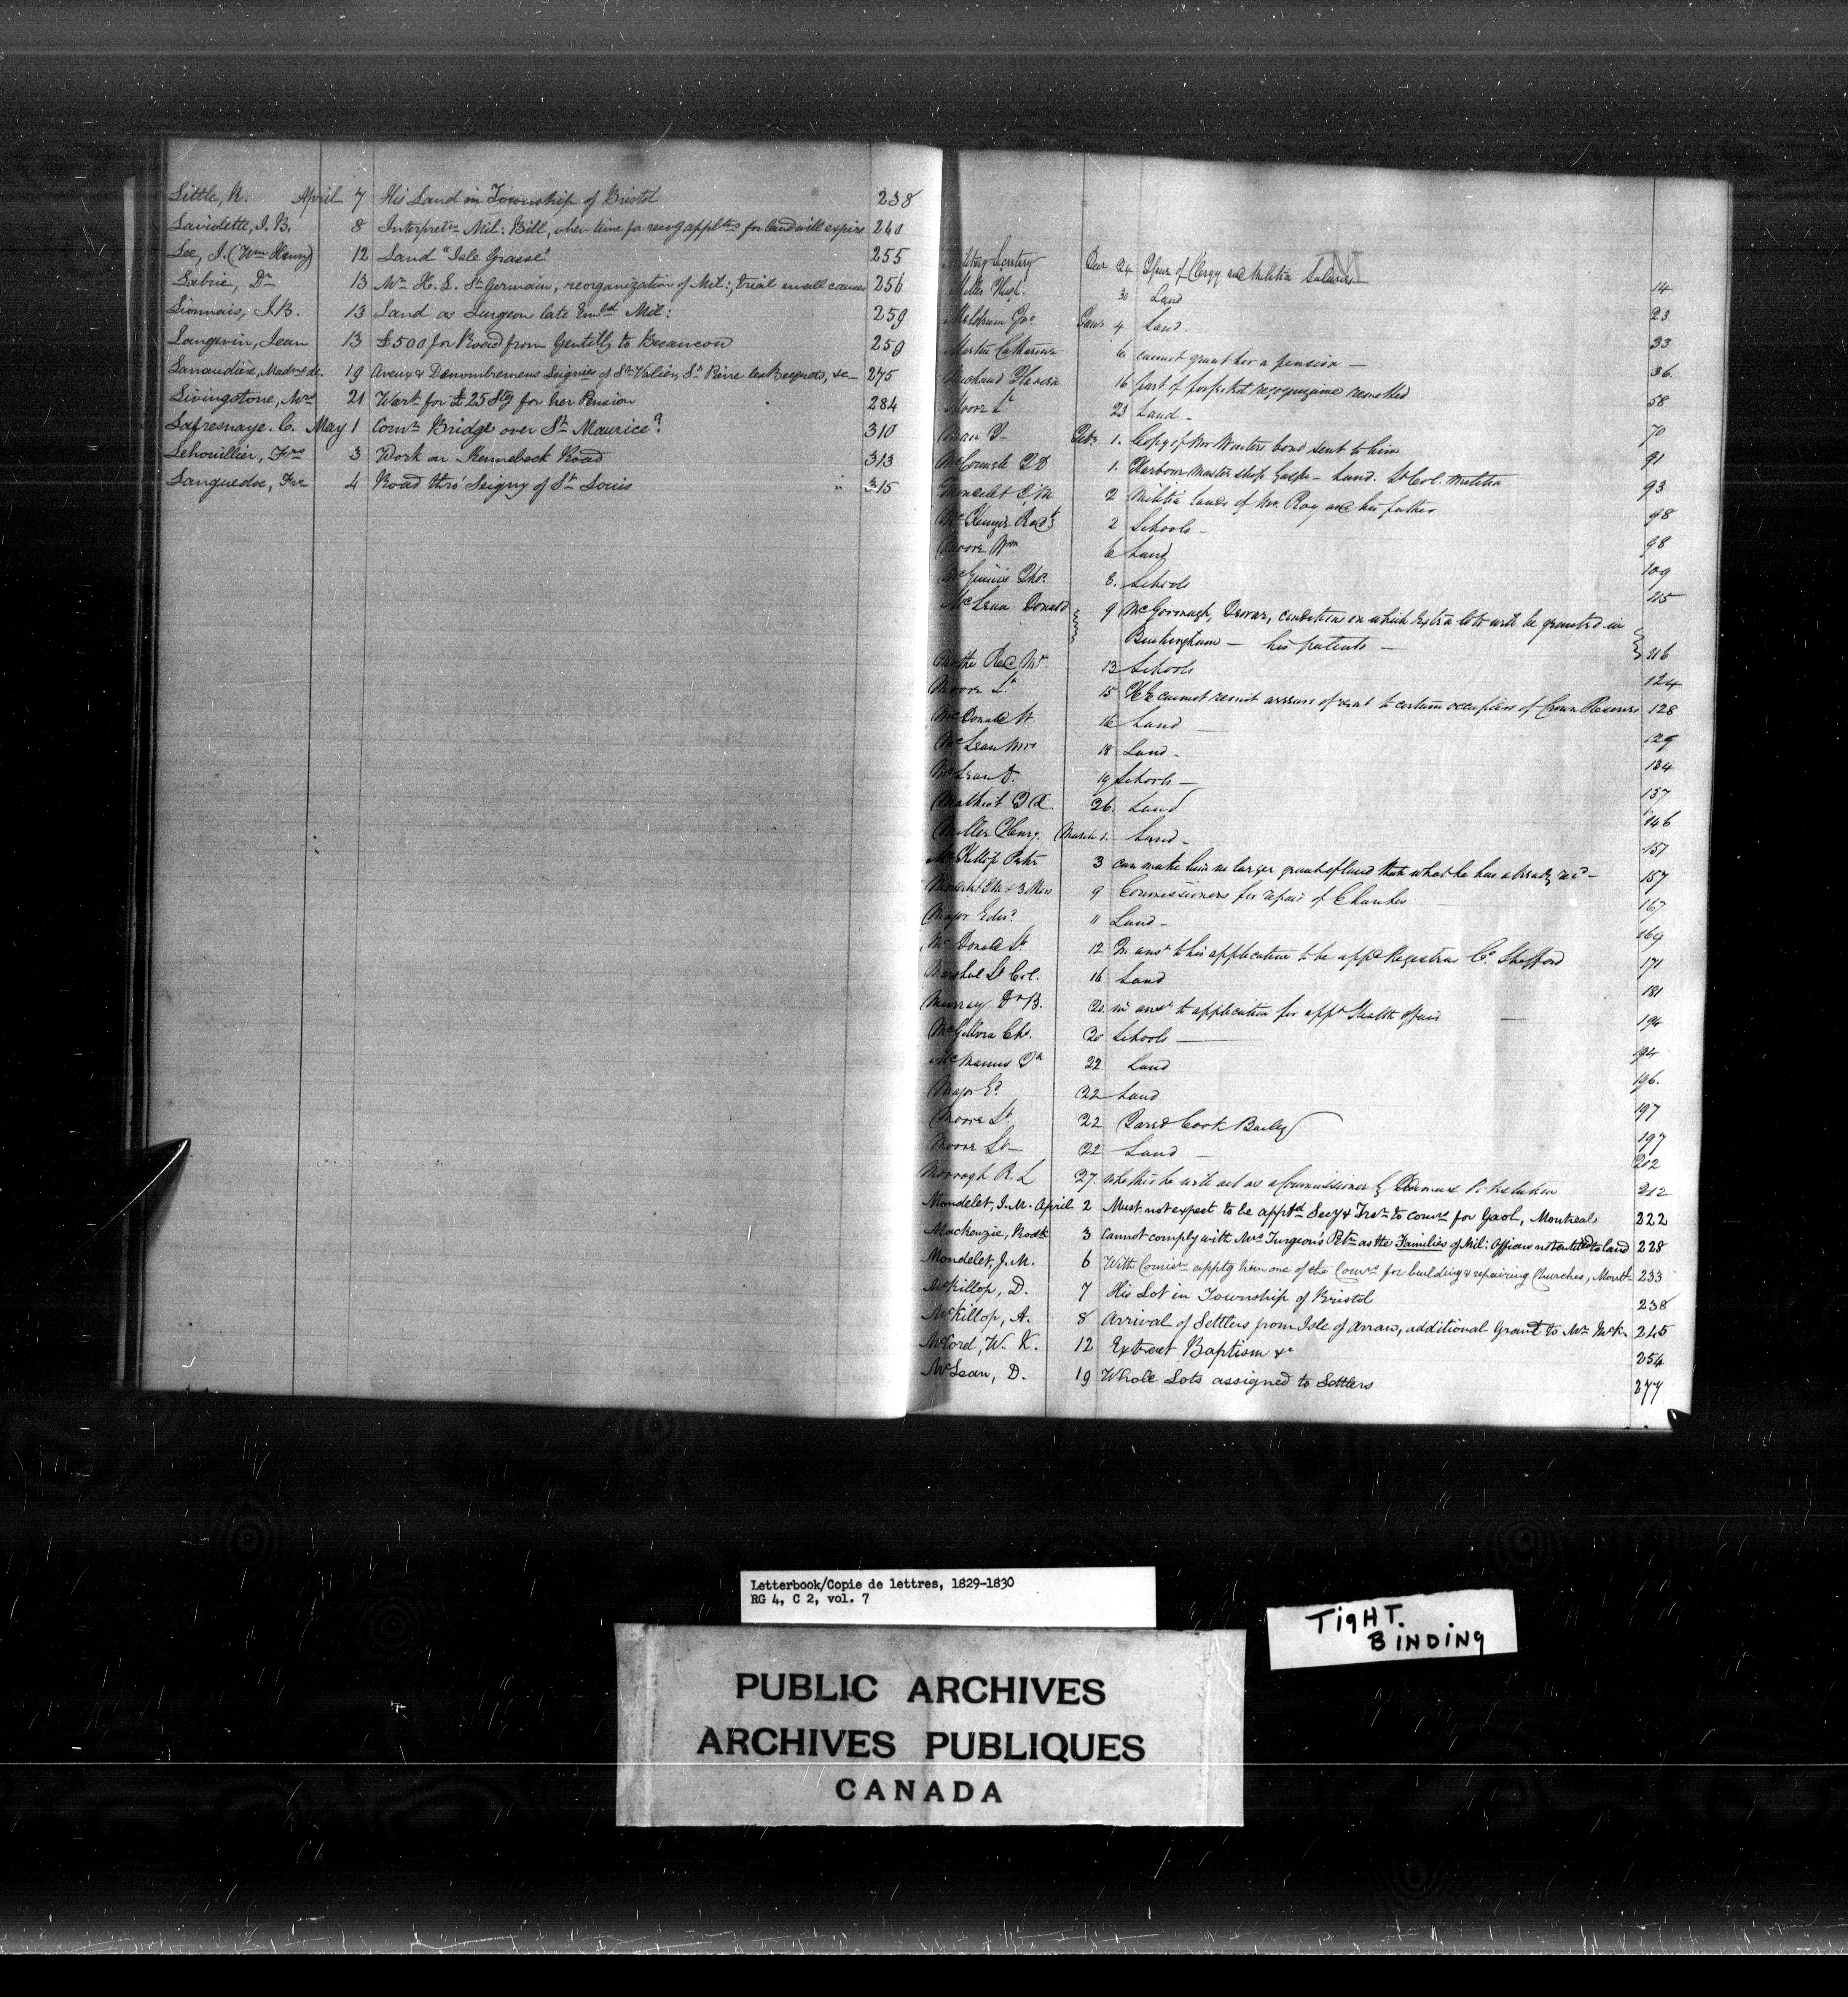 Little, R. April 7 His Land in Township of Bristol 238
Laviolette, J. B. 8 Interpretn Mil: Bill, when time for recvg appltns for land will expire 240
Lee, J. (Wm Henry) 12 Land "Isle Grasse" 255
Labrie, Dr 13 Mr H. L. St Germain, reorganization of Mil:, trial small causes 256
Lionnais, J. B. 13 Land as Surgeon late Embd Mil: 259
Langevin, Jean 13 £500 for Road from Gentilly to Becancour 259
Lanaudière, Madme de. 19 Aveux & Denombremens Seignies of St Valier, St Pierre les Becquets, &c 275
Livingstone, Mrs 21 Wart for £25 Stg for her Pension 284
Lafresnaye. C. May 1 Comrs Bridge over St Maurice? 310
Lehouillier, Frs 3 Work on Kennebeck Road 313
Languedoc, Frs 4 Road thro' Seigny of St Louis " 315
M
Military Secretary Decr 24 of Clergy and Militia Salaries 14
Miller Hugh. 30 Land 23
Meldrum Jno Janr 4 Land. 33
Martin Catharine 6 cannot grant her a pension — 36.
Michaud 16 part of forfeited recognizance remitted 58
Moore Lt 23 Land — 70
Man Feby 1. Copy of Mr Winters bond sent to him 91
McConnell 1. Harbour Master ship Gaspe — Land. Lt Col. Militia 93
Mondelet J M 2 Militia lands of Mr. Roy and his father 98
McKenzie Rodk 2 Schools — 98
Moore Wm 6 Land 109
McGinnis Thos. 8. Schools 115
McLean Donald 9 McGoonaugh, Dewar, conditions on which extra lots will be granted in
Buckingham — his patents — 116
Revd Mr 13 Schools 124
Moore Lt 15 H E cannot remit arrears of rent to certain occupiers of Crown Reserves 128
McDonald W. 16 Land 129
McLean Mrs 18 Land — 134
McLean D. 19 Schools — 137
Mathiot 26. Land 146
Miller Henry. March 1. Land — 151
McKillop Peter 3 can make him no larger grant of land than what he has already recd — 157
Mondelet J M & 3 others 9 Commissioners for repair of Churches 167
Major Edwd 11 Land — 169
McDonald 12 In ansr to his application to be appd Registrar Co. Shefford 171
Marshal Lt Col. 16 Land 181
Murray Dr B. 20 in ansr to application for appt Health officer 194
McGillvra Chs. 20 Schools 194
McManus 22 Land 196.
Major Ed 22 Land 197
Moore Lt. 22 Jared Cook Bailey 197
Moore Lt — 22 Land — 202
Morrogh R. L 27. whether he will act as a Commissioner 212
Mondelet, J. M. April 2 Must not expect to be apptd Secy & Trsr to comrs for Gaol, Montreal 222
Mackenzie, Rodk 3 Cannot comply with Mrs Turgeon's Petn as the Families of Mil: Officers not entitled to land 228
Mondelet, J. M. 6 With Comisn apptg him one of the Comrs for building & repairing Churches, Montl 233
McKillop, D. 7 His Lot in Township of Bristol 238
McKillop, A. 8 Arrival of Settlers from Isle of Arran, additional Grant to Mr McK. 245
McCord, W. K. 12 Extract Baptism &c 254
McLean, D. 19 Whole Lots assigned to Settlers 277
Letterbook/Copie de lettres, 1829-1830
RG 4, C 2, vol. 7
TIGHT.
BINDING
PUBLIC ARCHIVES
ARCHIVES PUBLIQUES
CANADA